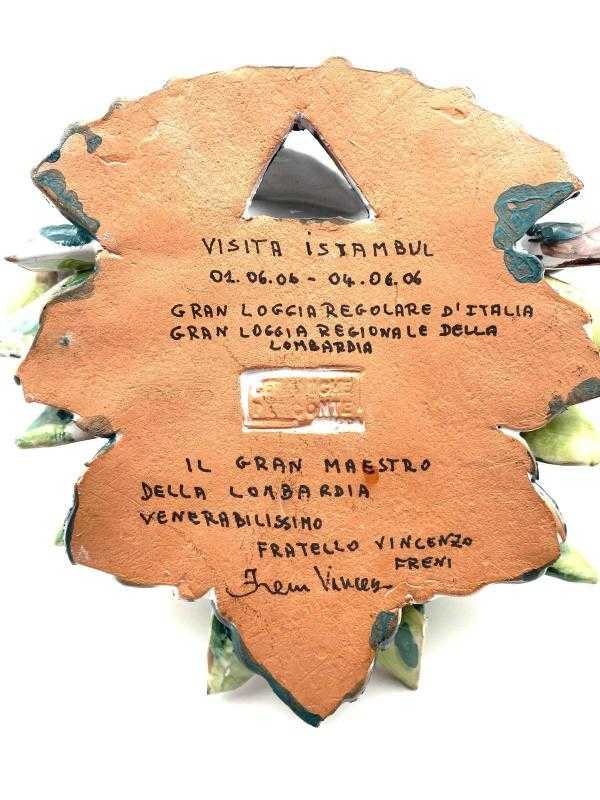 VISITA ISTAMBUL
01.06.06 - 04.06.06
GRAN LOGGIA REGOLARE D'ITALIA
GRAN LOGGIA REGIONALE DELLA
LOMBARDIA
CONTE
IL GRAN MAESTRO
DELLA LOMBARDIA
VENERABILISSIMO
FRATELLO VINCENZO
FRENI